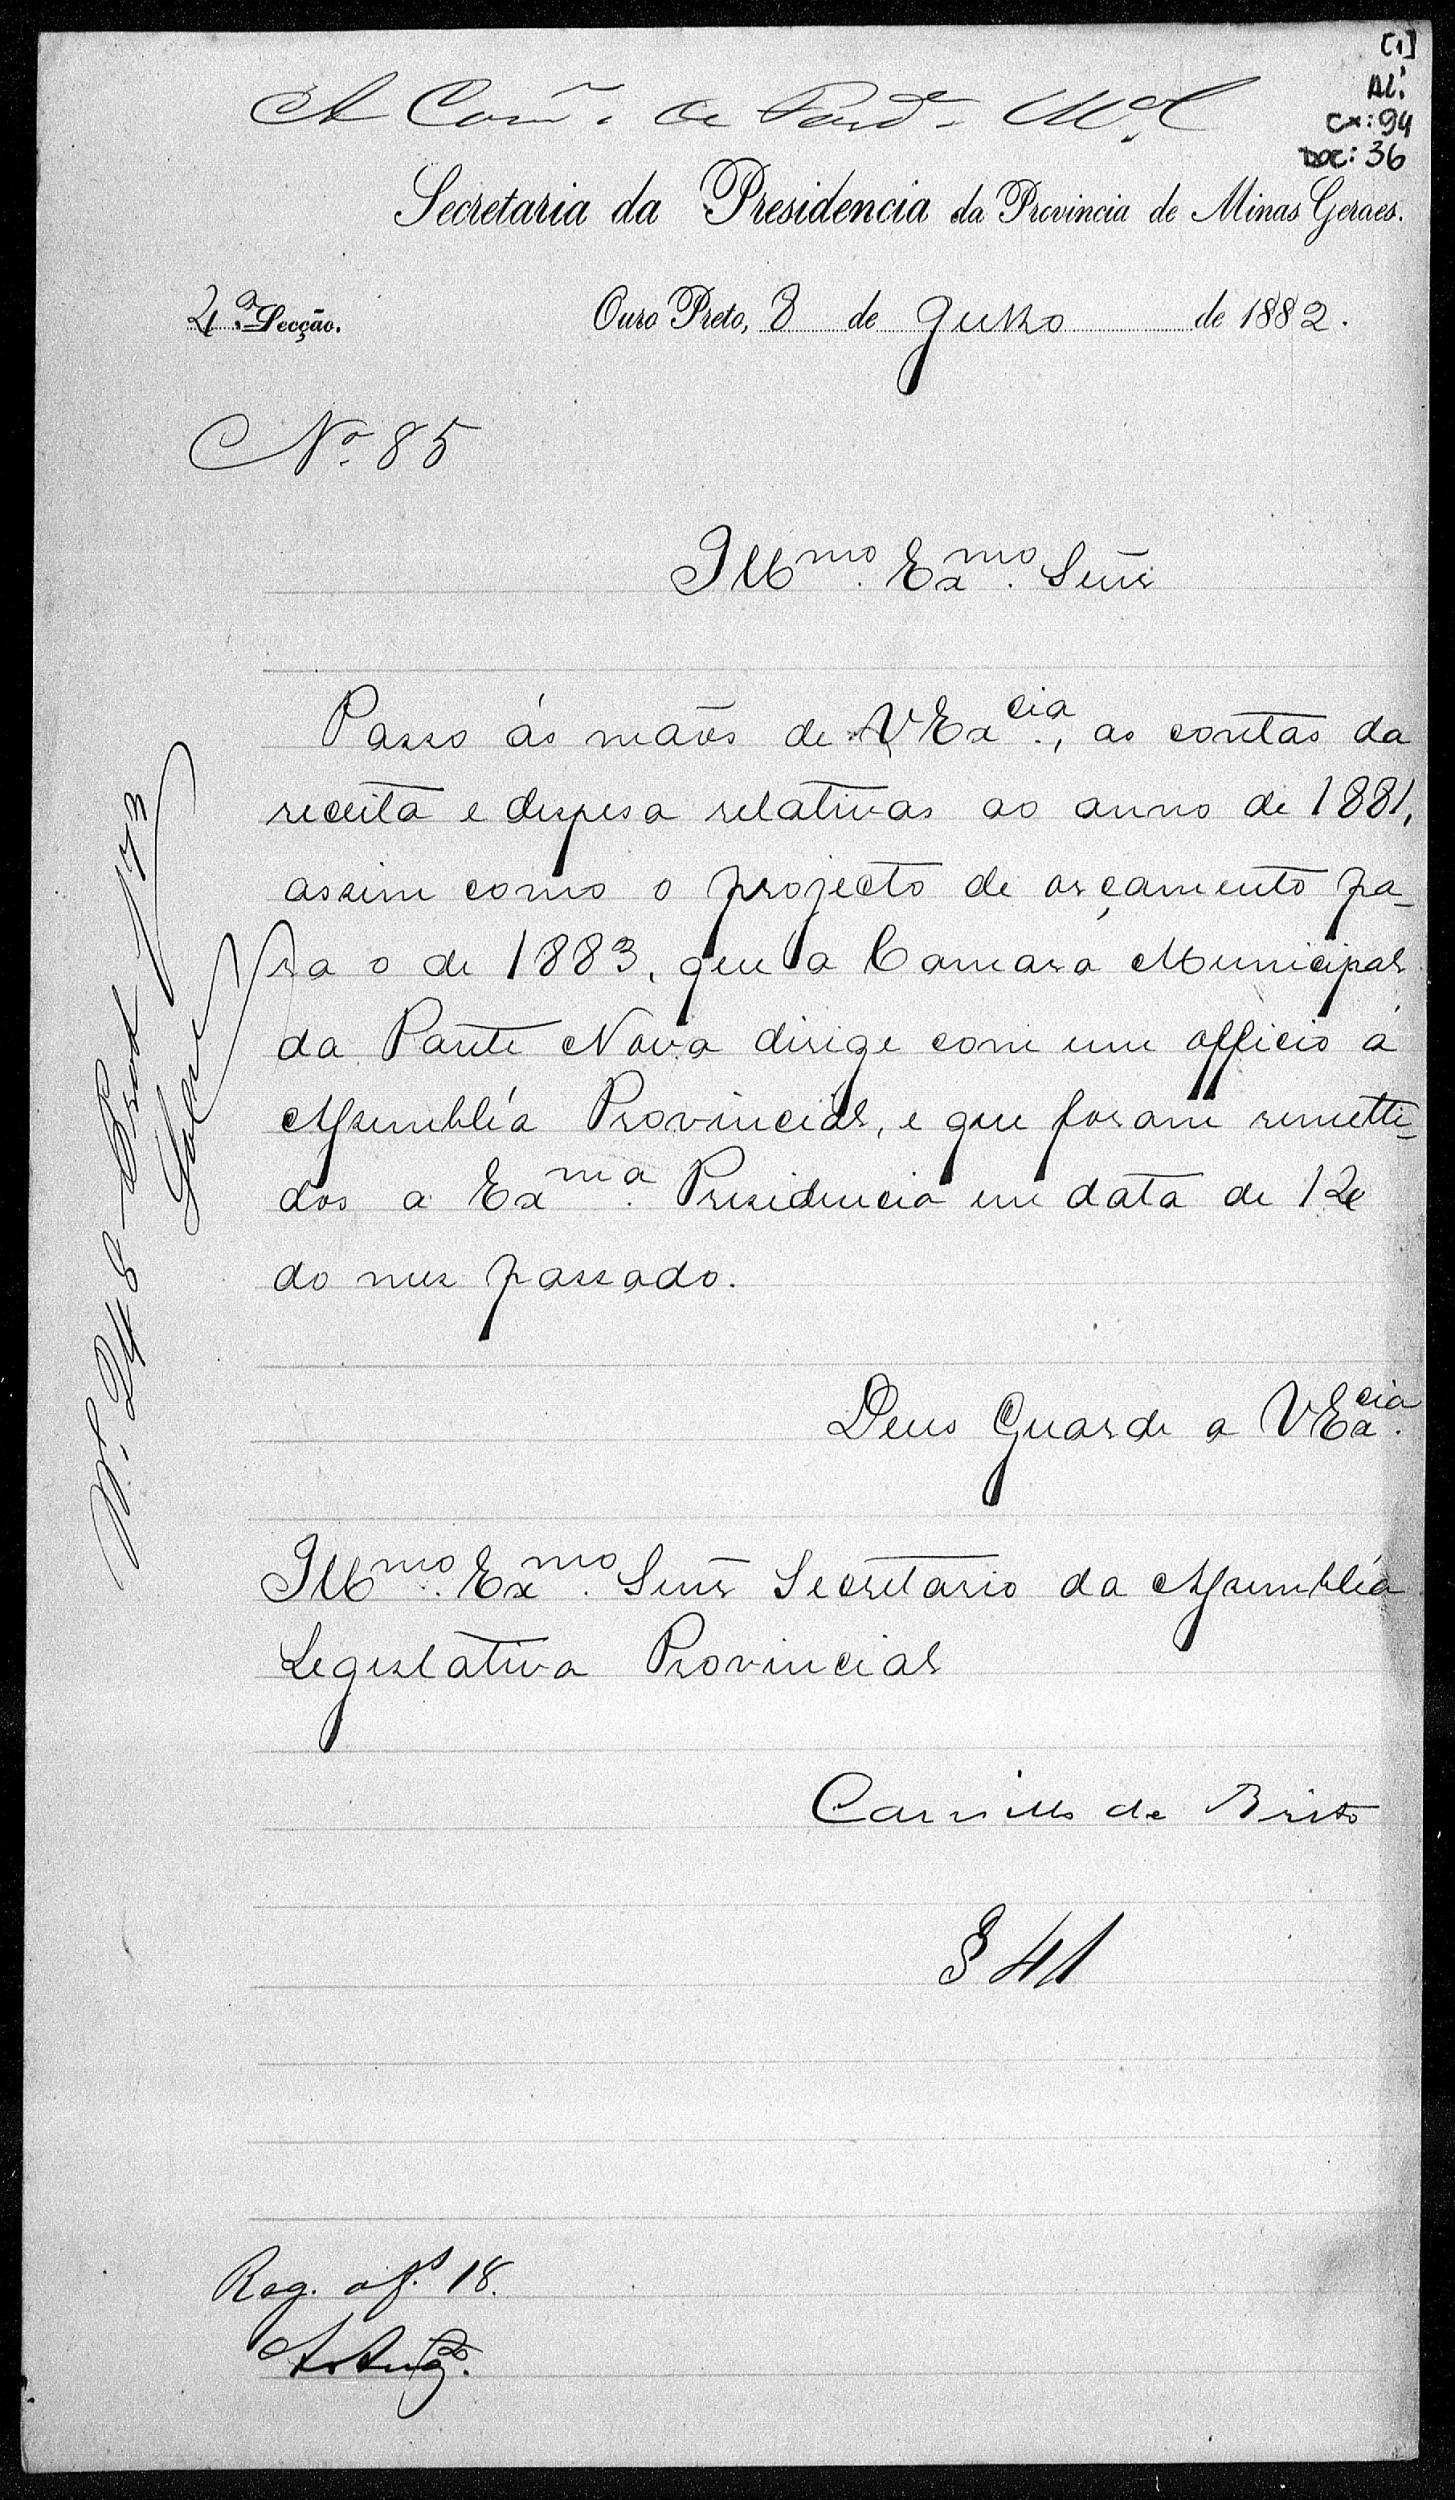 [1]
AL:
CX: 94
DOC: 36
A Com. de
Secretaria da Presidencia da Provincia de Minas Geraes.
2ª Secção. Ouro Preto, 8 de Julho de 1882.
Nº 85
Illmo. Exmo. Senr
Passo ás mãos de VExcia., as contas da
receita e despesa relativas ao anno de 1881,
assim como o projecto de orçamento pa-
ra o de 1883, que a Camara Municipal
da Ponte Nova dirige com um officio á
Assembléa Provincial, e que foram remetti-
dos a Exma. Presidencia em data de 12
do mez passado.
Deus Guarde a VExcia.
Illmo. Exmo. Senr Secretario da Assembléa
Legislativa Provincial
Camillo de Brito
§ 41
Reg. a f. 18.